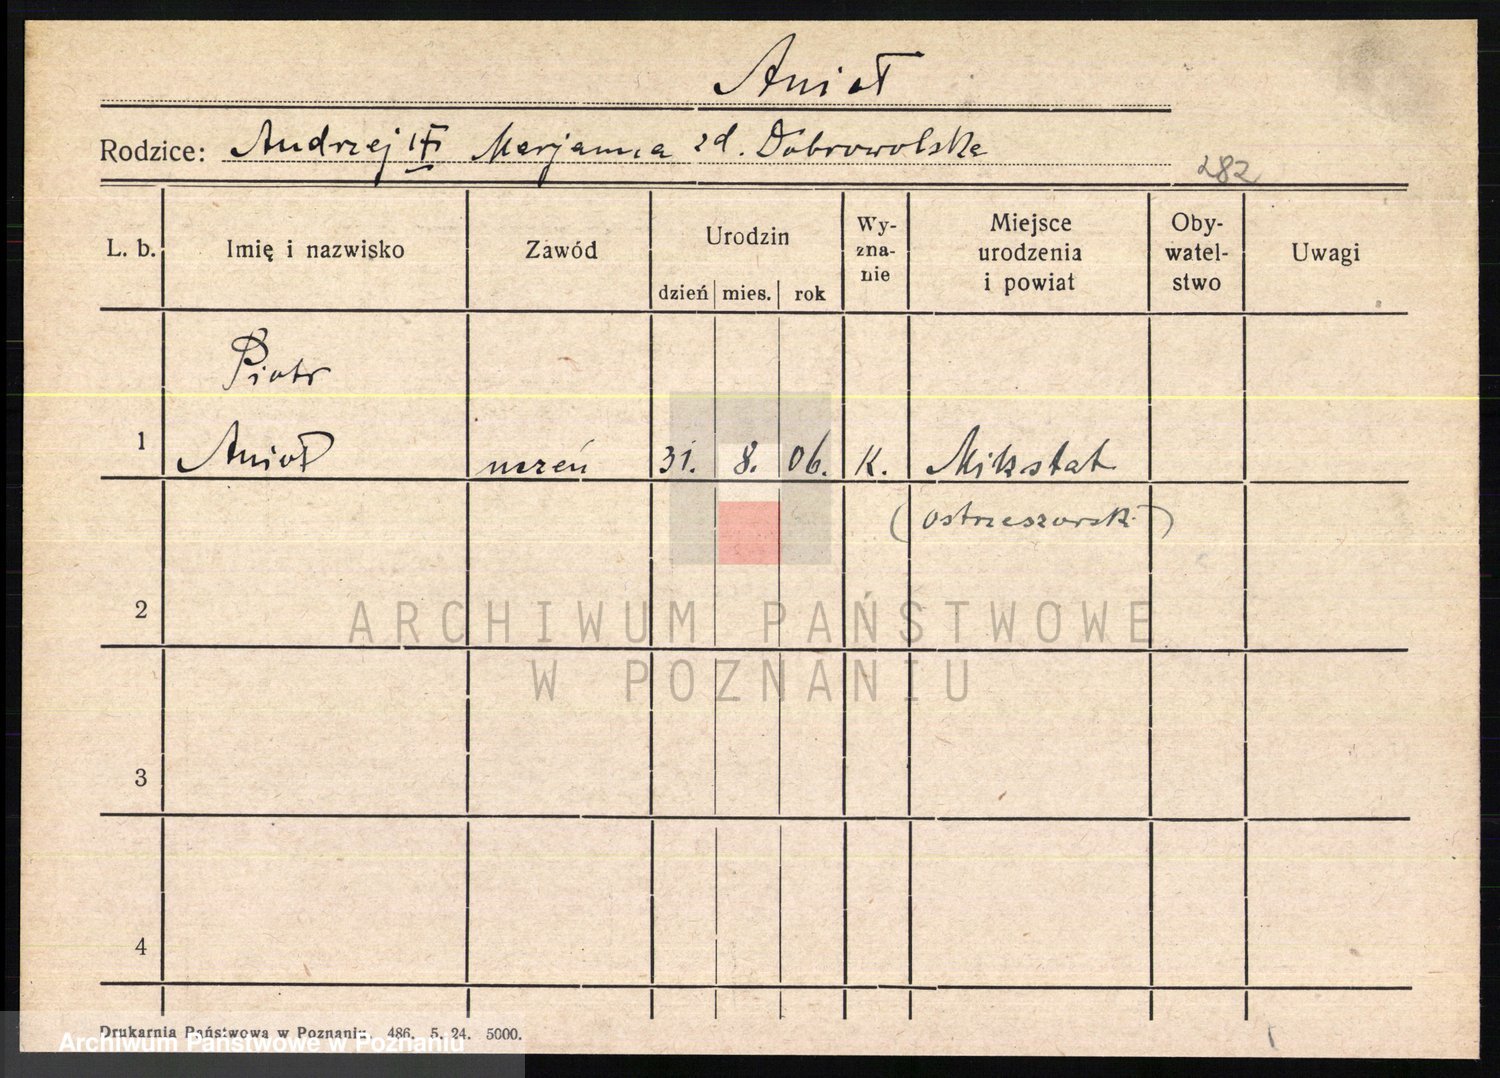 Anioł
Rodzice: Andrzej Marjanna zd. Dobrowolska
282
L. b. Imię i nazwisko Zawód Urodzin dzień mies. rok Wy-zna-nie Miejsce urodzenia i powiat Oby-watel-stwo Uwagi
Piotr
1 Anioł uczeń 31. 8. 06. K. Mikstat
(Ostrzeszowski)
2
ARCHIWUM PAŃSTWOWE
W POZNANIU
3
4
Drukarnia Państwowa w Poznaniu. 486. 5. 24. 5000.
Archiwum Państwowe w Poznaniu